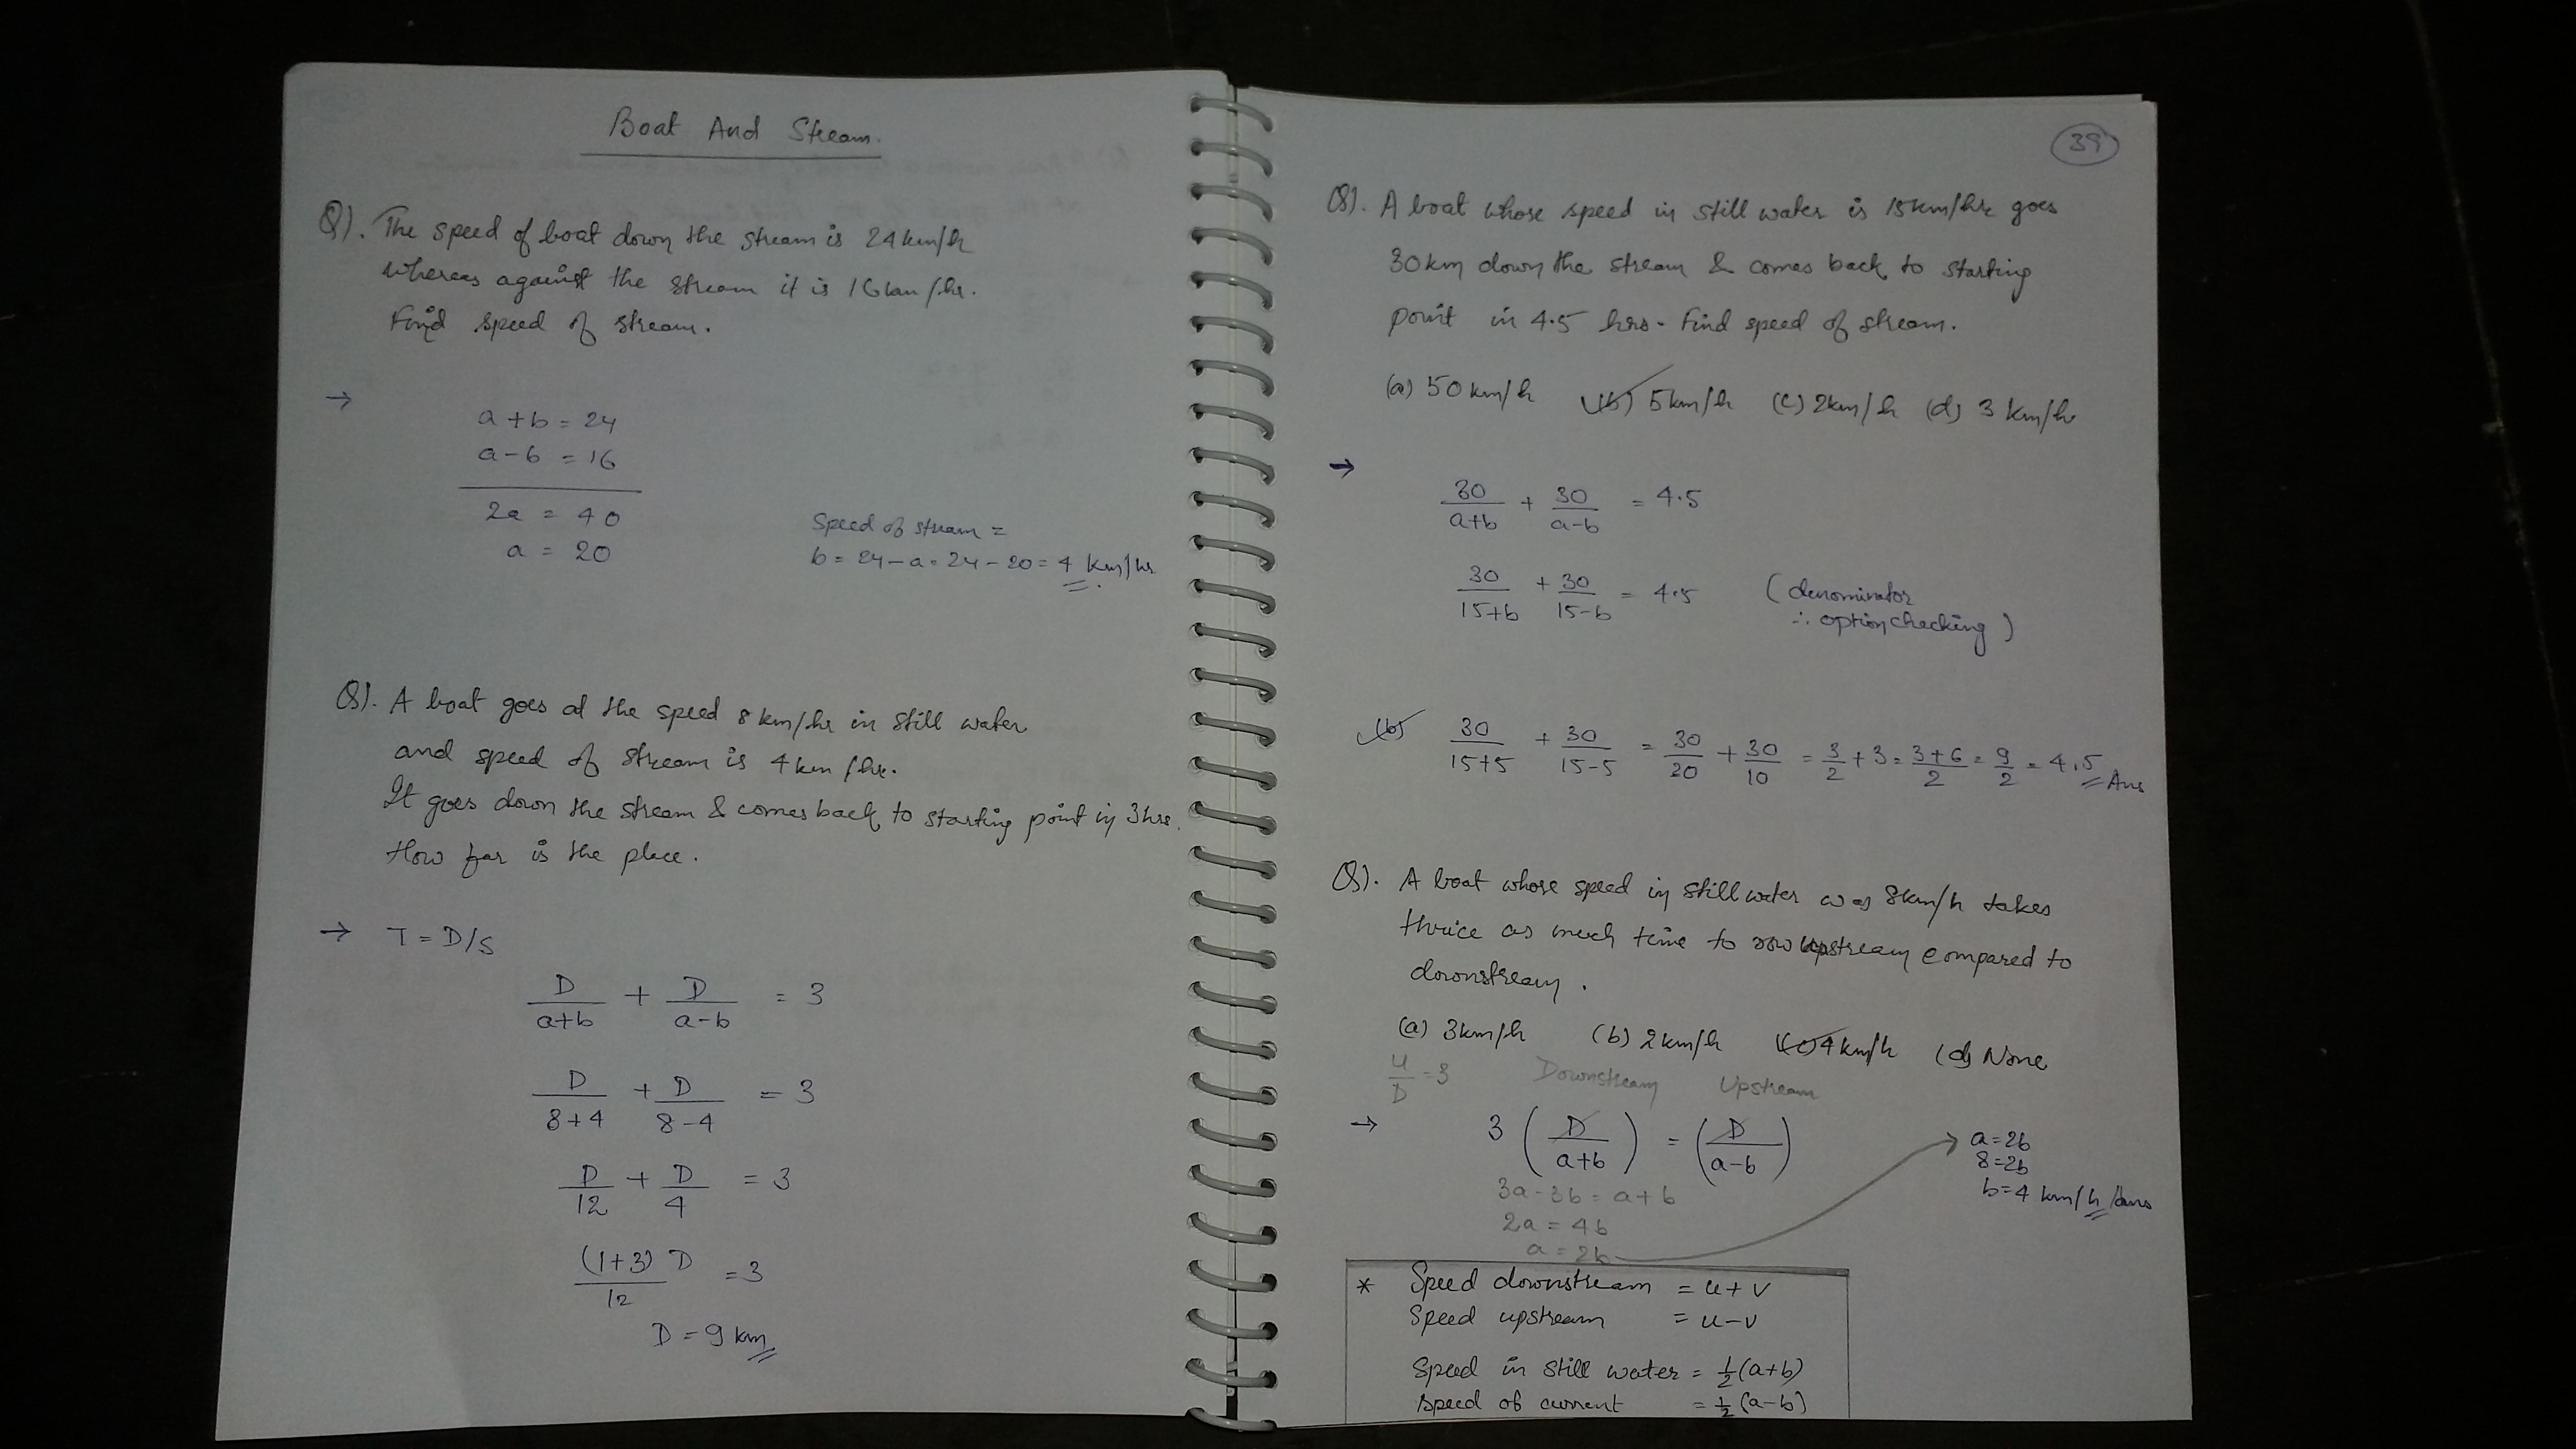 Boat And Stream.
Q). The speed of boat down the stream is 24km/h
whereas against the stream it is 16km/hr.
Find speed of stream.
→
a+b = 24
a-b = 16
2a = 40
a = 20
Speed of stream =
b = 24-a = 24-20 = 4 km/hr.
Q). A boat goes at the speed 8km/hr in still water
and speed of stream is 4km/hr.
It goes down the stream & comes back to starting point in 3hrs.
How far is the place.
→ T = D/S
D/(a+b) + D/(a-b) = 3
D/(8+4) + D/(8-4) = 3
D/12 + D/4 = 3
(1+3)D/12 = 3
D = 9 km
39
Q). A boat whose speed in still water is 15km/hr goes
30km down the stream & comes back to starting
point in 4.5 hrs. Find speed of stream.
(a) 50km/h (b) 5km/h (c) 2km/h (d) 3 km/hr
→
30/(a+b) + 30/(a-b) = 4.5
30/(15+b) + 30/(15-b) = 4.5 (denominator
∴ option checking)
(b) 30/(15+5) + 30/(15-5) = 30/20 + 30/10 = 3/2 + 3 = (3+6)/2 = 9/2 = 4.5 Ans
Q). A boat whose speed in still water was 8km/h takes
thrice as much time to row upstream compared to
downstream.
(a) 3km/h (b) 2km/h (c) 4km/h (d) None
U/D = 3 Downstream Upstream
→ 3(D/(a+b)) = (D/(a-b))
3a-3b = a+b
2a = 4b
a = 2b
a=2b
8=2b
b=4 km/h /ans
* Speed downstream = u+v
Speed upstream = u-v
Speed in still water = 1/2(a+b)
Speed of current = 1/2(a-b)